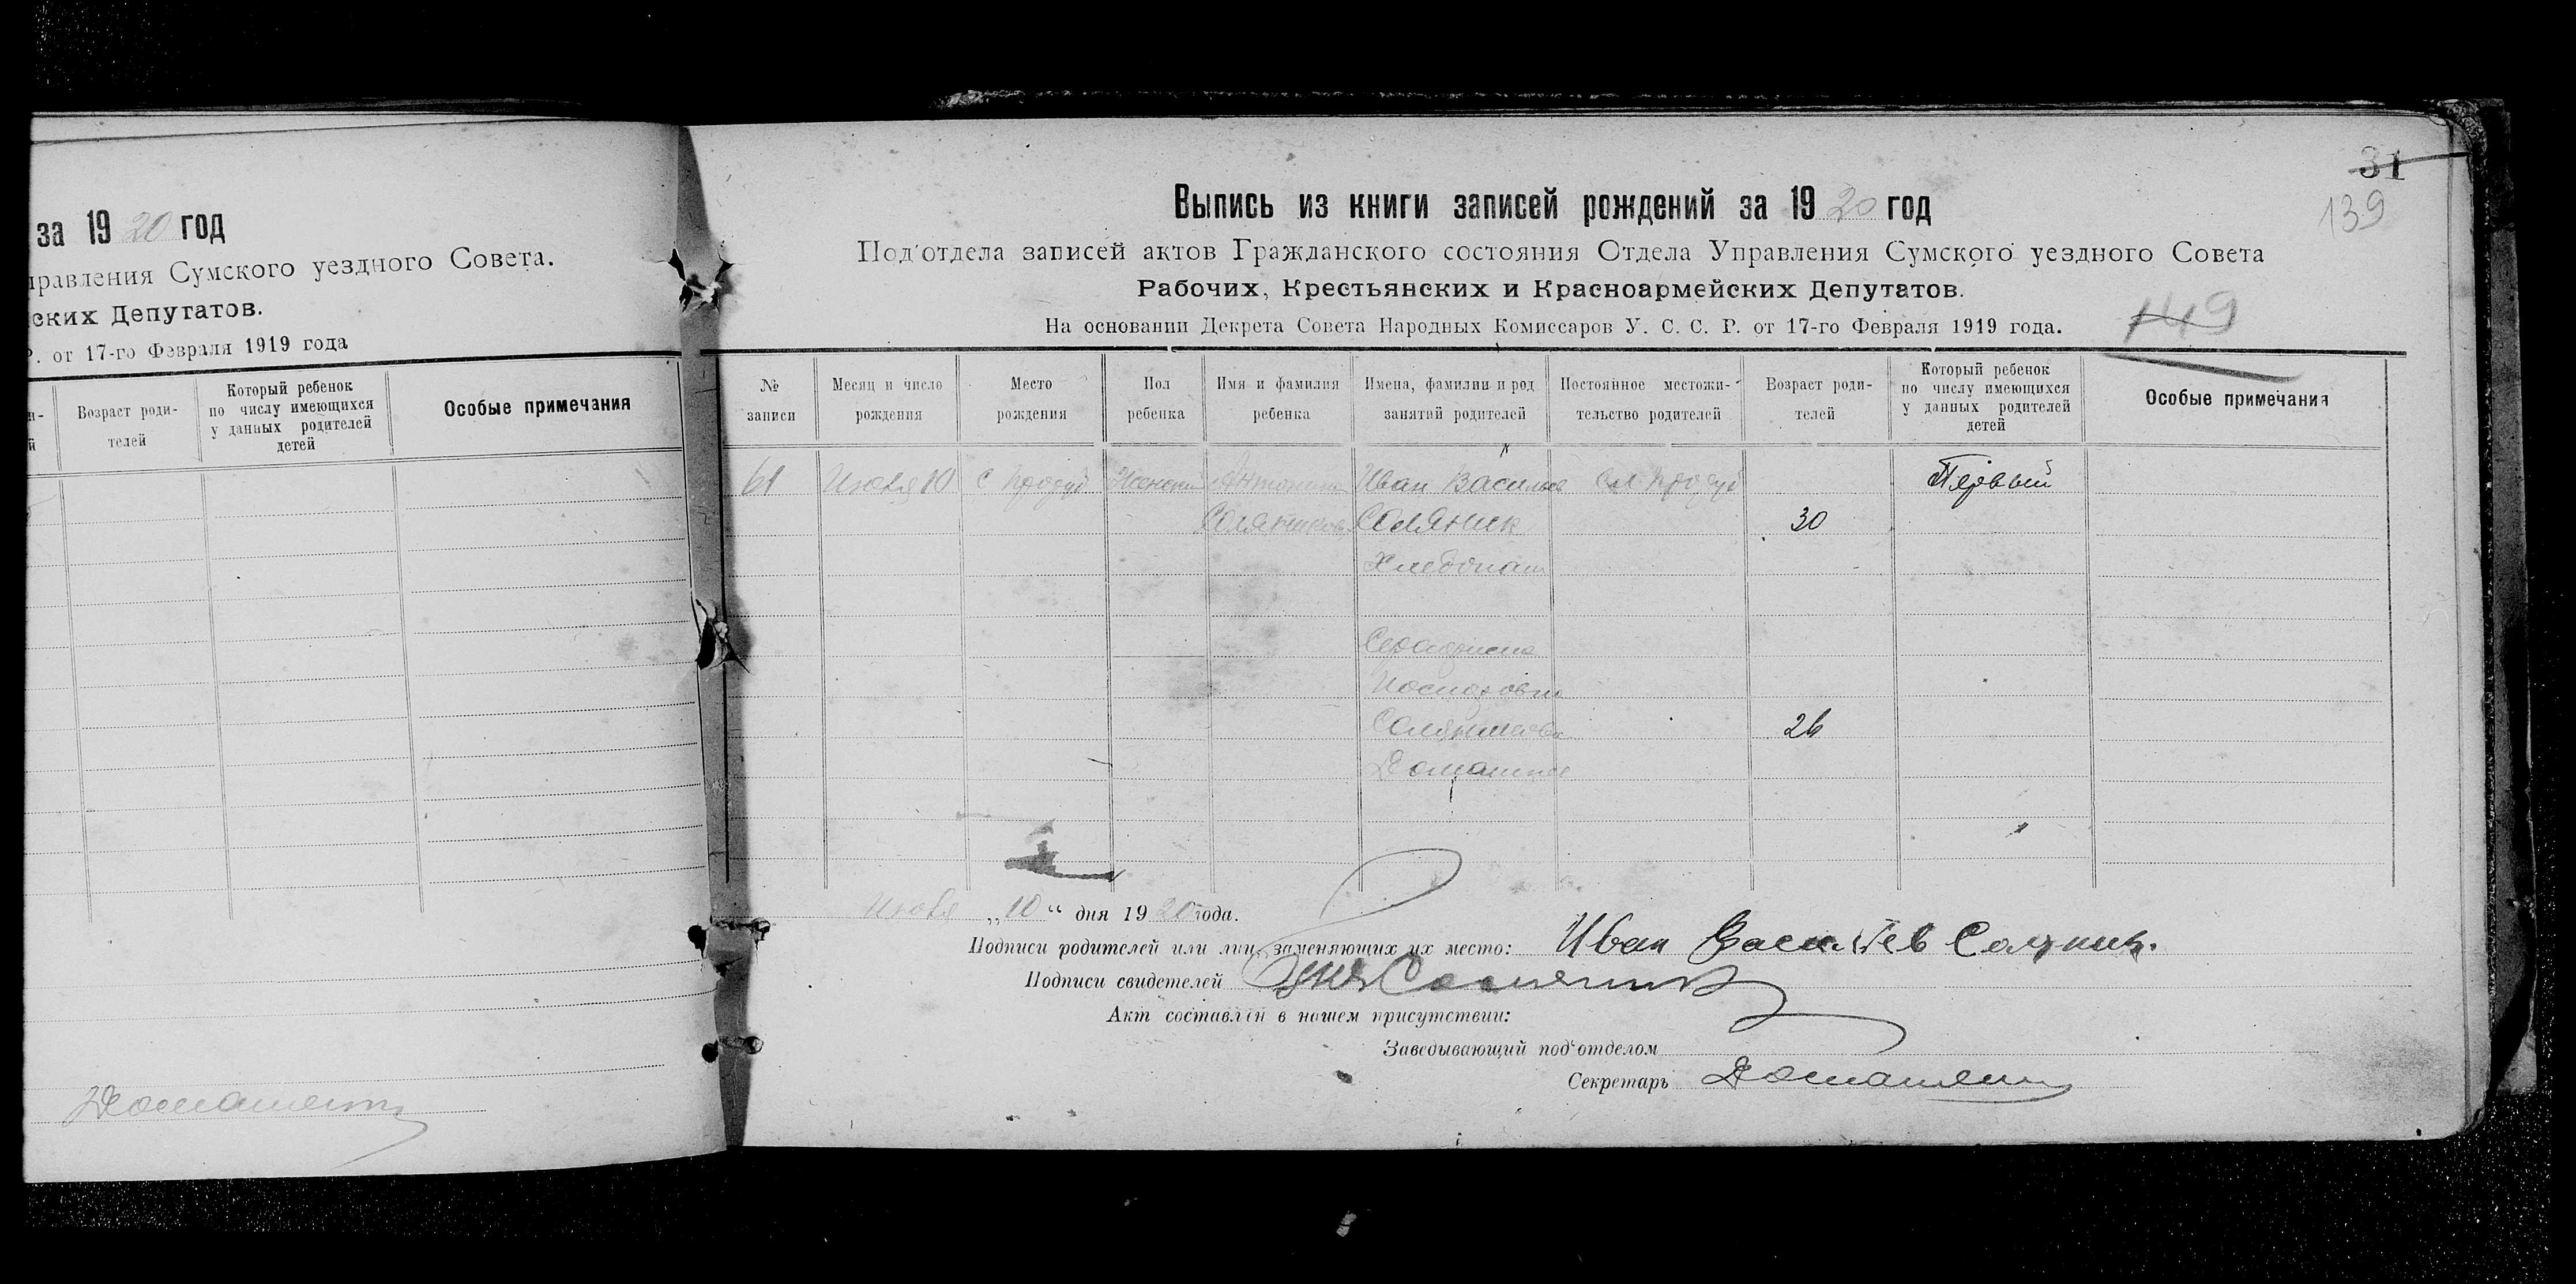 за 1920 год
правления Сумского уездного Совета.
ских Депутатов.
Р. от 17-го Февраля 1919 года
Возраст роди-
телей
Который ребенок
по числу имеющихся
у данных родителей
детей
Особые примечания
31
139
149
Выпись из книги записей рождений за 1920 год
Под'отдела записей актов Гражданского состояния Отдела Управления Сумского уездного Совета
Рабочих, Крестьянских и Красноармейских Депутатов.
На основании Декрета Совета Народных Комиссаров У. С. С. Р. от 17-го Февраля 1919 года.
№
записи
Месяц и число
рождения
Место
рождения
Пол
ребенка
Имя и фамилия
ребенка
Имена, фамилии и род
занятий родителей
Постоянное местожи-
тельство родителей
Возраст роди-
телей
Который ребенок
по числу имеющихся
у данных родителей
детей
Особые примечания
61 10 с Женский Антонина Иван Васильев Первый
Соляникова Соляник 30
Хлебопаш
Соляникова 26
Домашнее
„10“ дня 1920 года.
Подписи родителей или лиц, заменяющих их место: Иван Васильев Соляник.
Подписи свидетелей
Акт составлен в нашем присутствии:
Заведывающий под'отделом
Секретарь